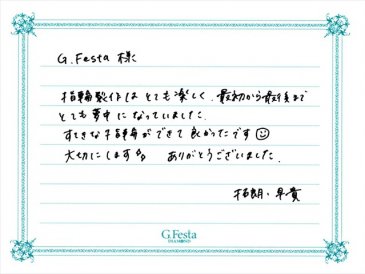 G.Festa 様
指輪製作は とても楽しく、最初から最後まで
とても夢中になっていました。
すてきな指輪ができて良かったです
大切にします ありがとうございました。
拓朗・早貴
G.Festa
DIAMOND